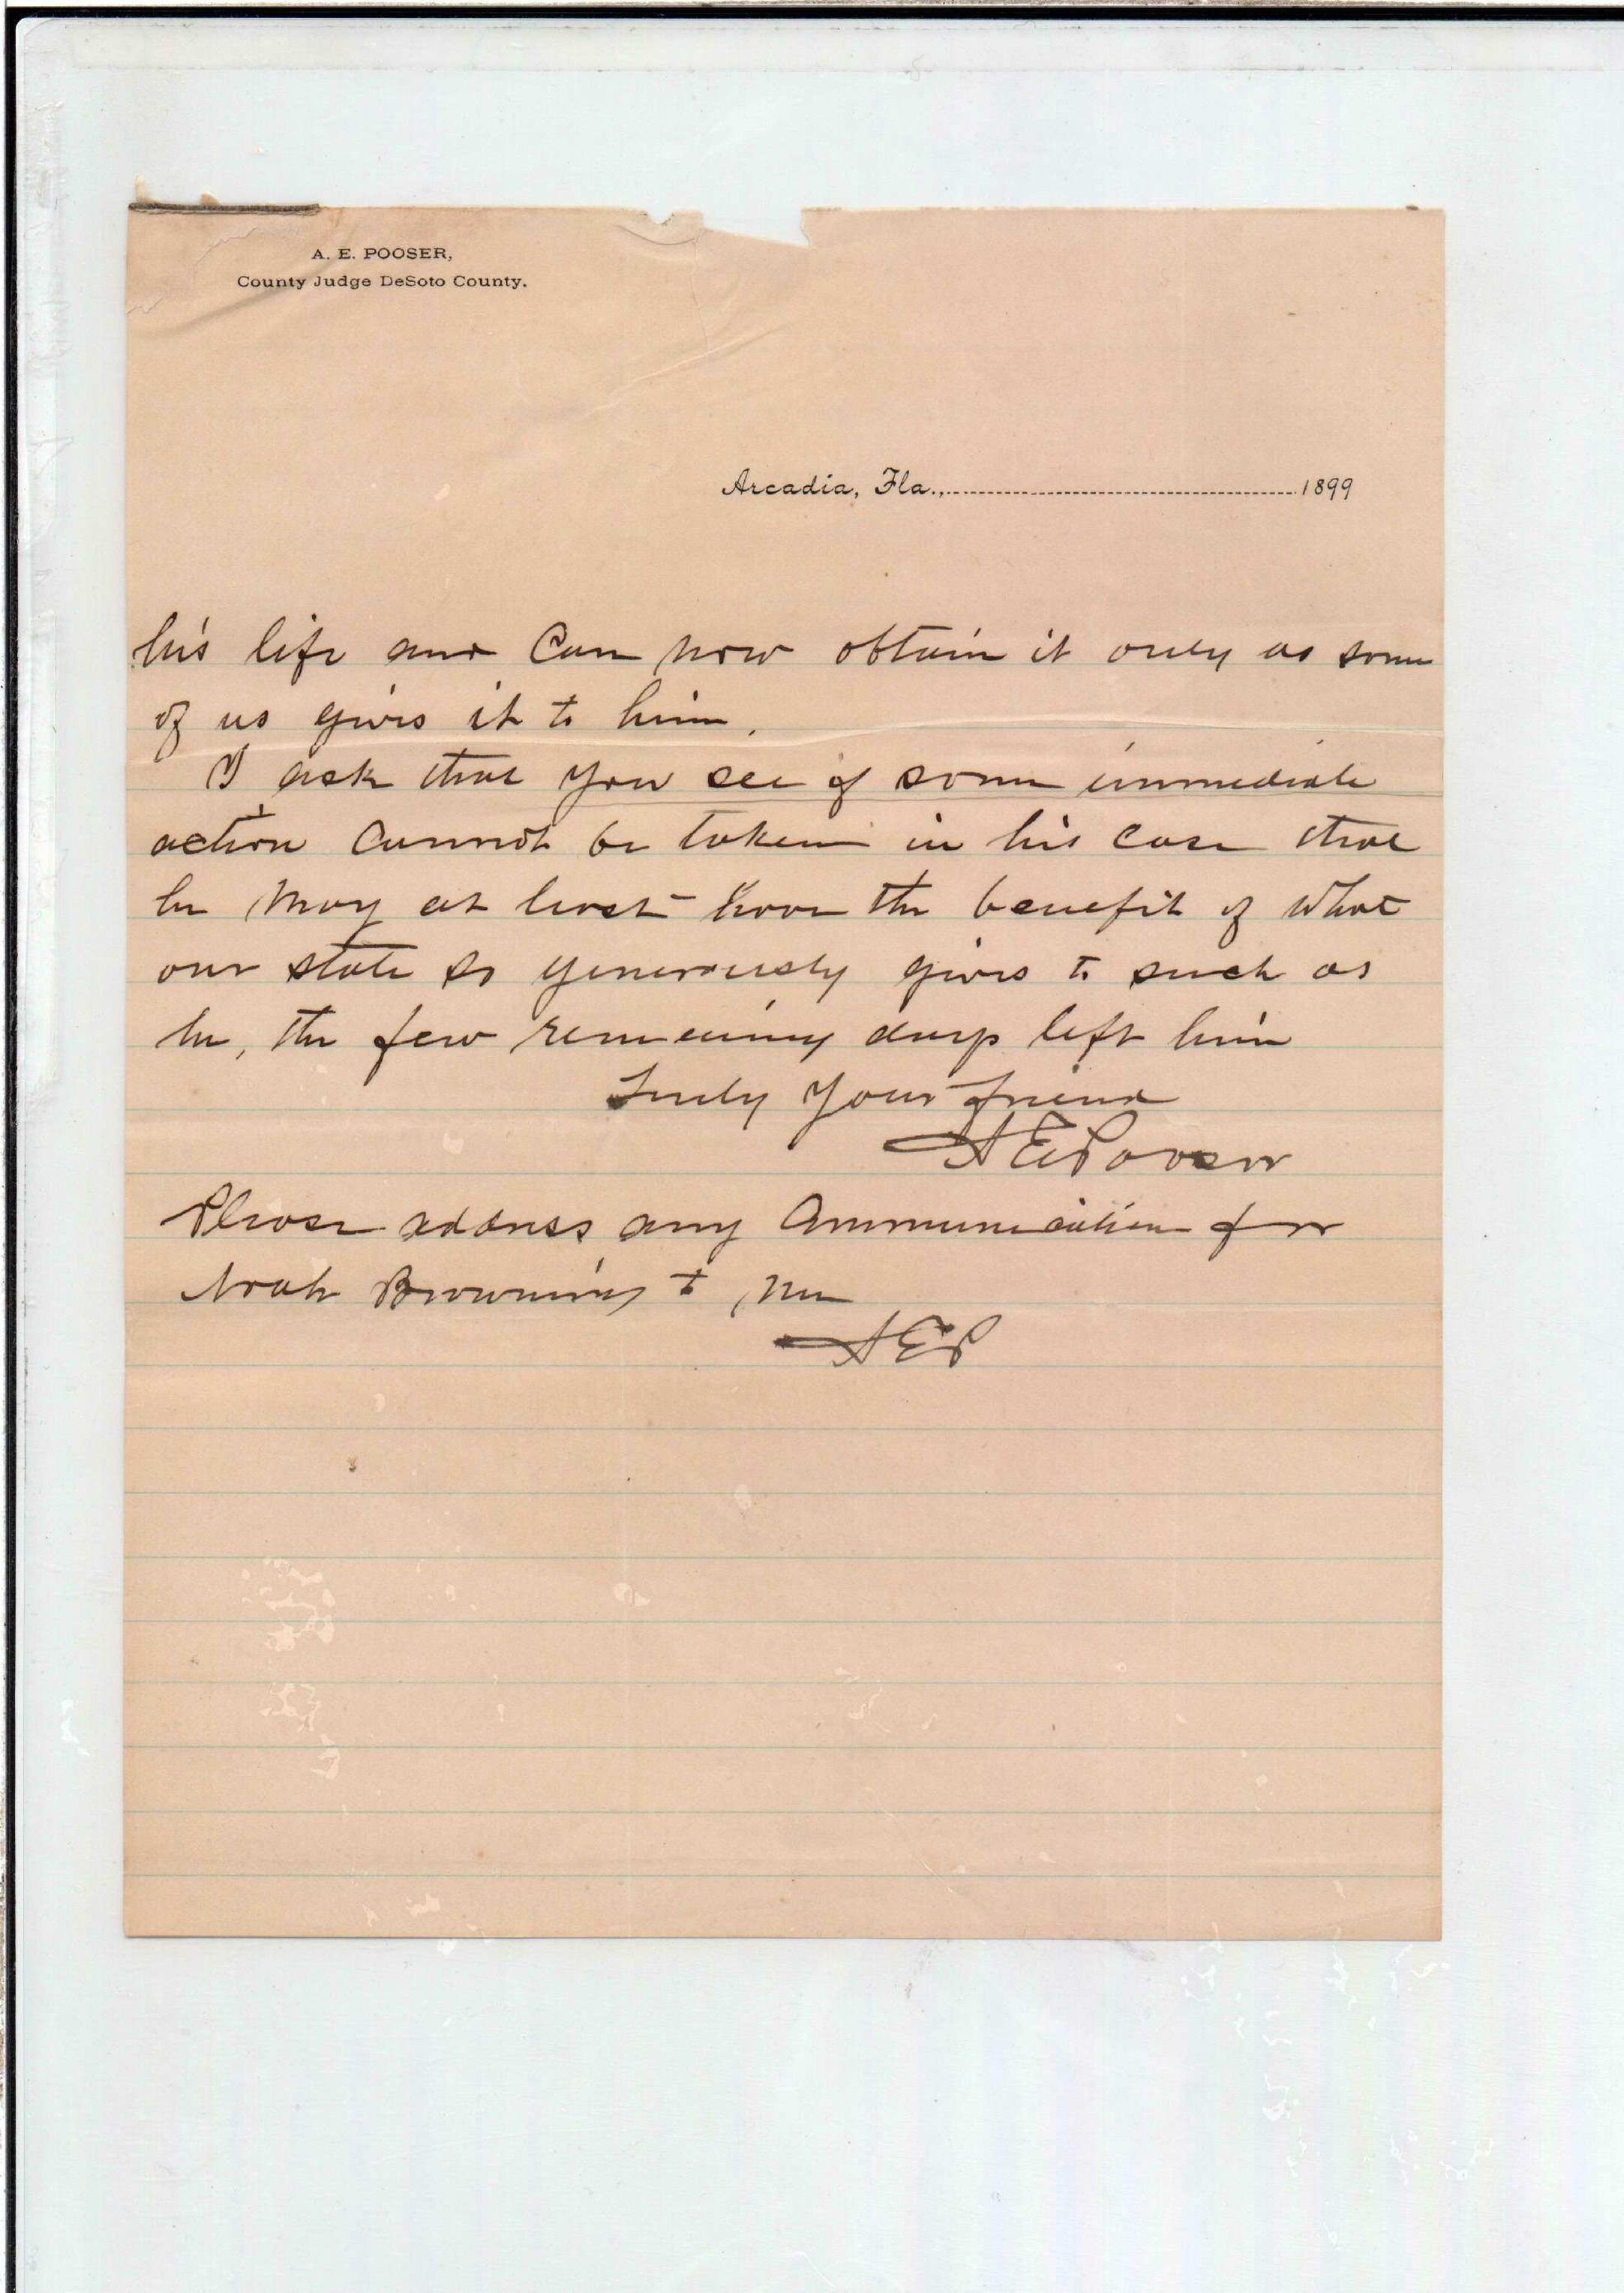 A. E. POOSER,
County Judge DeSoto County.
Arcadia, Fla., 1899
his life and Can now obtain it only as some
of us gives it to him.
I ask that you see if some immediate
action cannot be taken in his case that
he may at least have the benefit of what
our state so generously gives to such as
he, the few remaining days left him
Truly your friend
A E Pooser
Please address any Communication for
Noah Browning to me
AEP